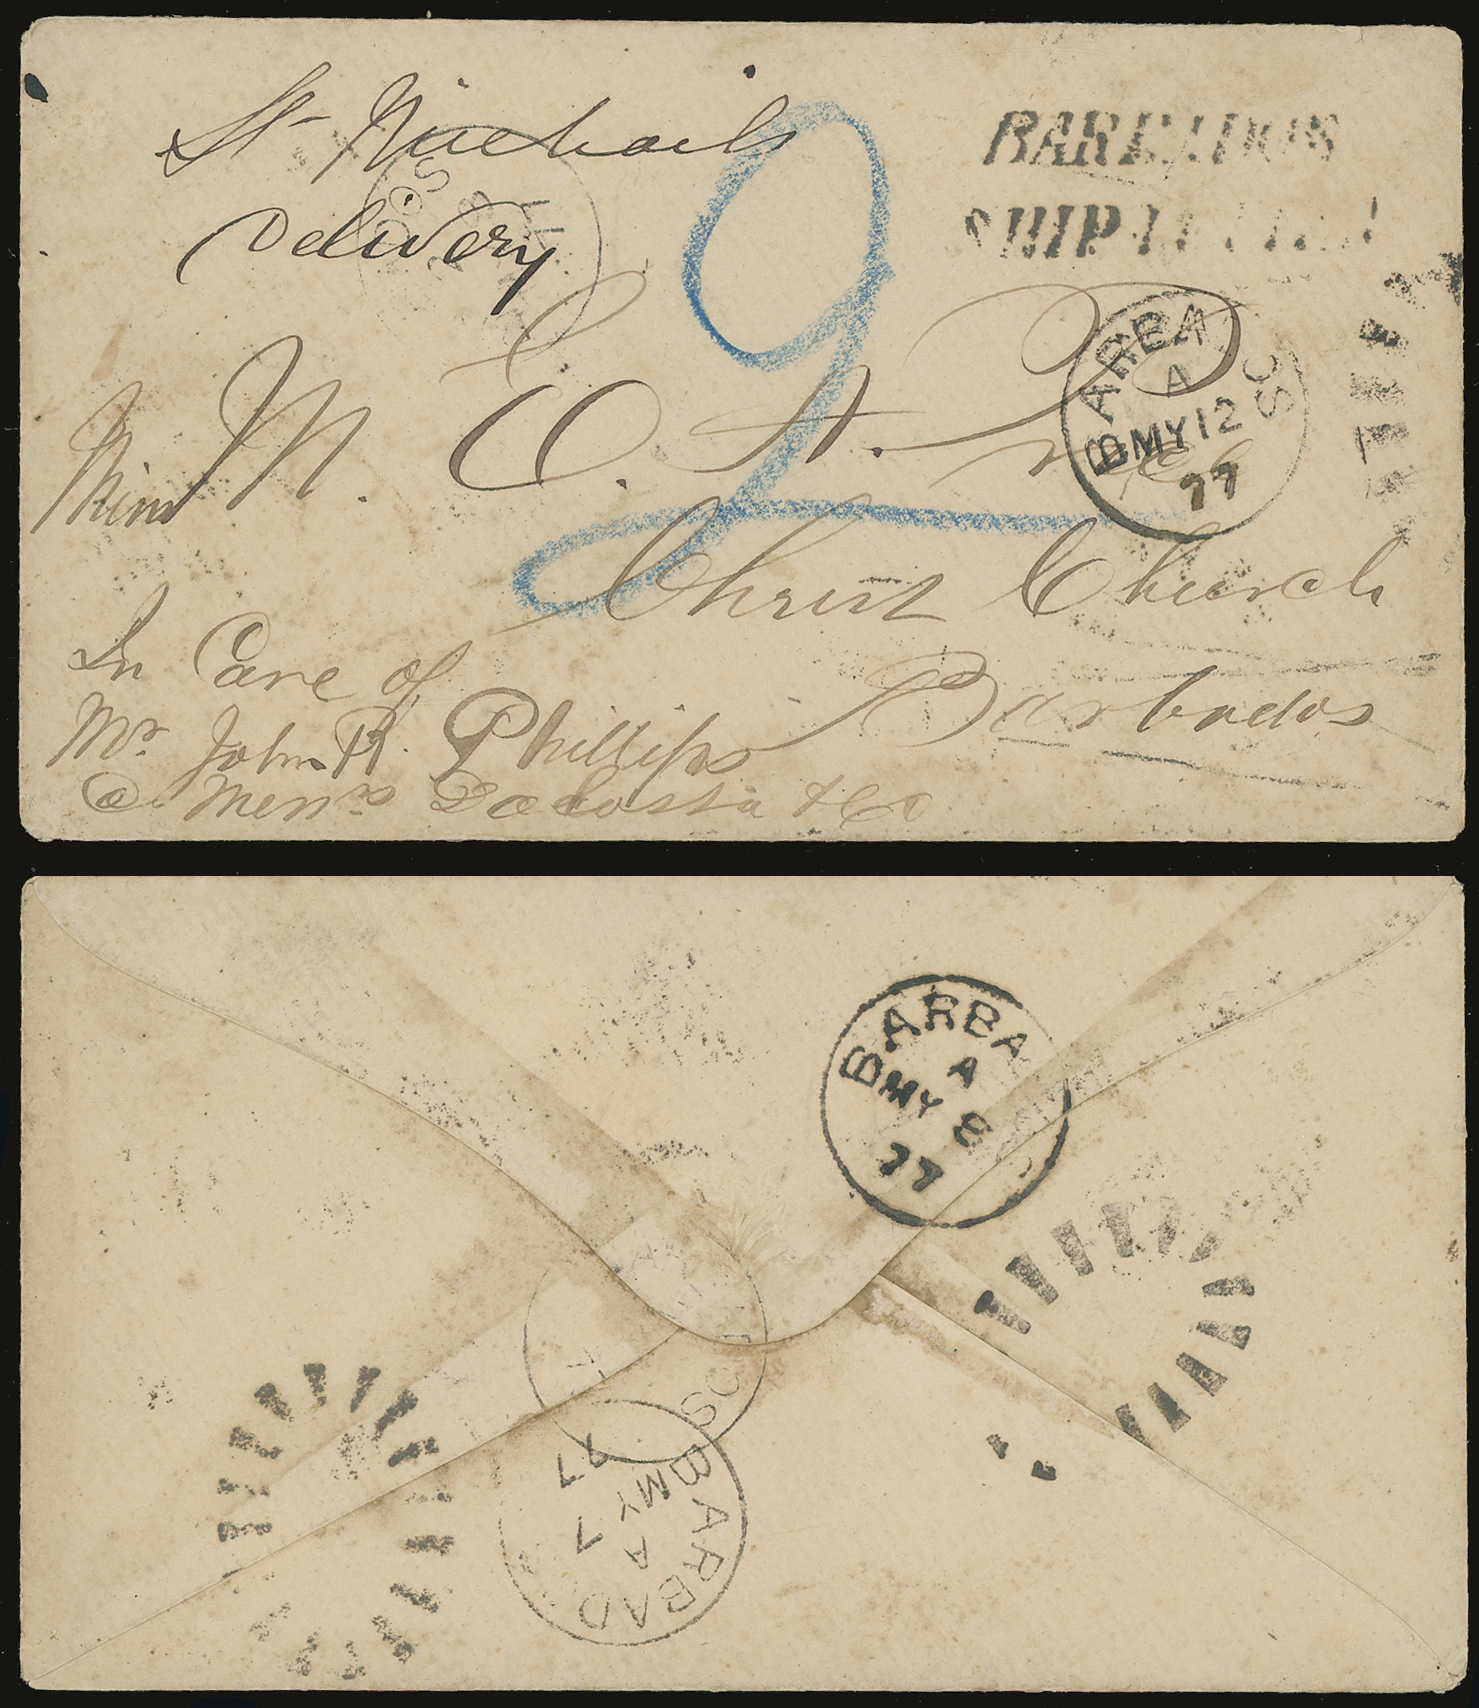 St Michaels
Delivery
2
BARBADOS
SHIP
BARBA OS
A
MY 12
77
Miss M. E. A.
Christ Church
Barbados
In Care of
Mr. John R. Phillips
@ Messrs Dacosta & Co
BARBA
A
MY 8
77
DOS
77
BARBAD
A
MY 7